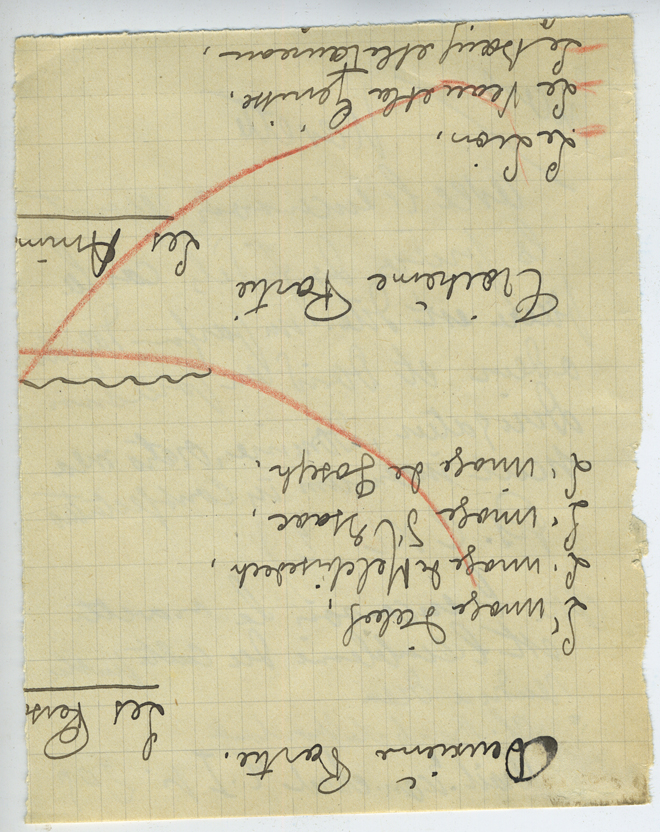 Deuxième Partie.
Les Pers
L'image d'Abel,
L'image de Melchisedech,
L'image d'Isaac,
L'image de Joseph.
Troisième Partie
Les Anim
Le Lion,
Le Veau et la Génisse,
Le bœuf et le taureau,